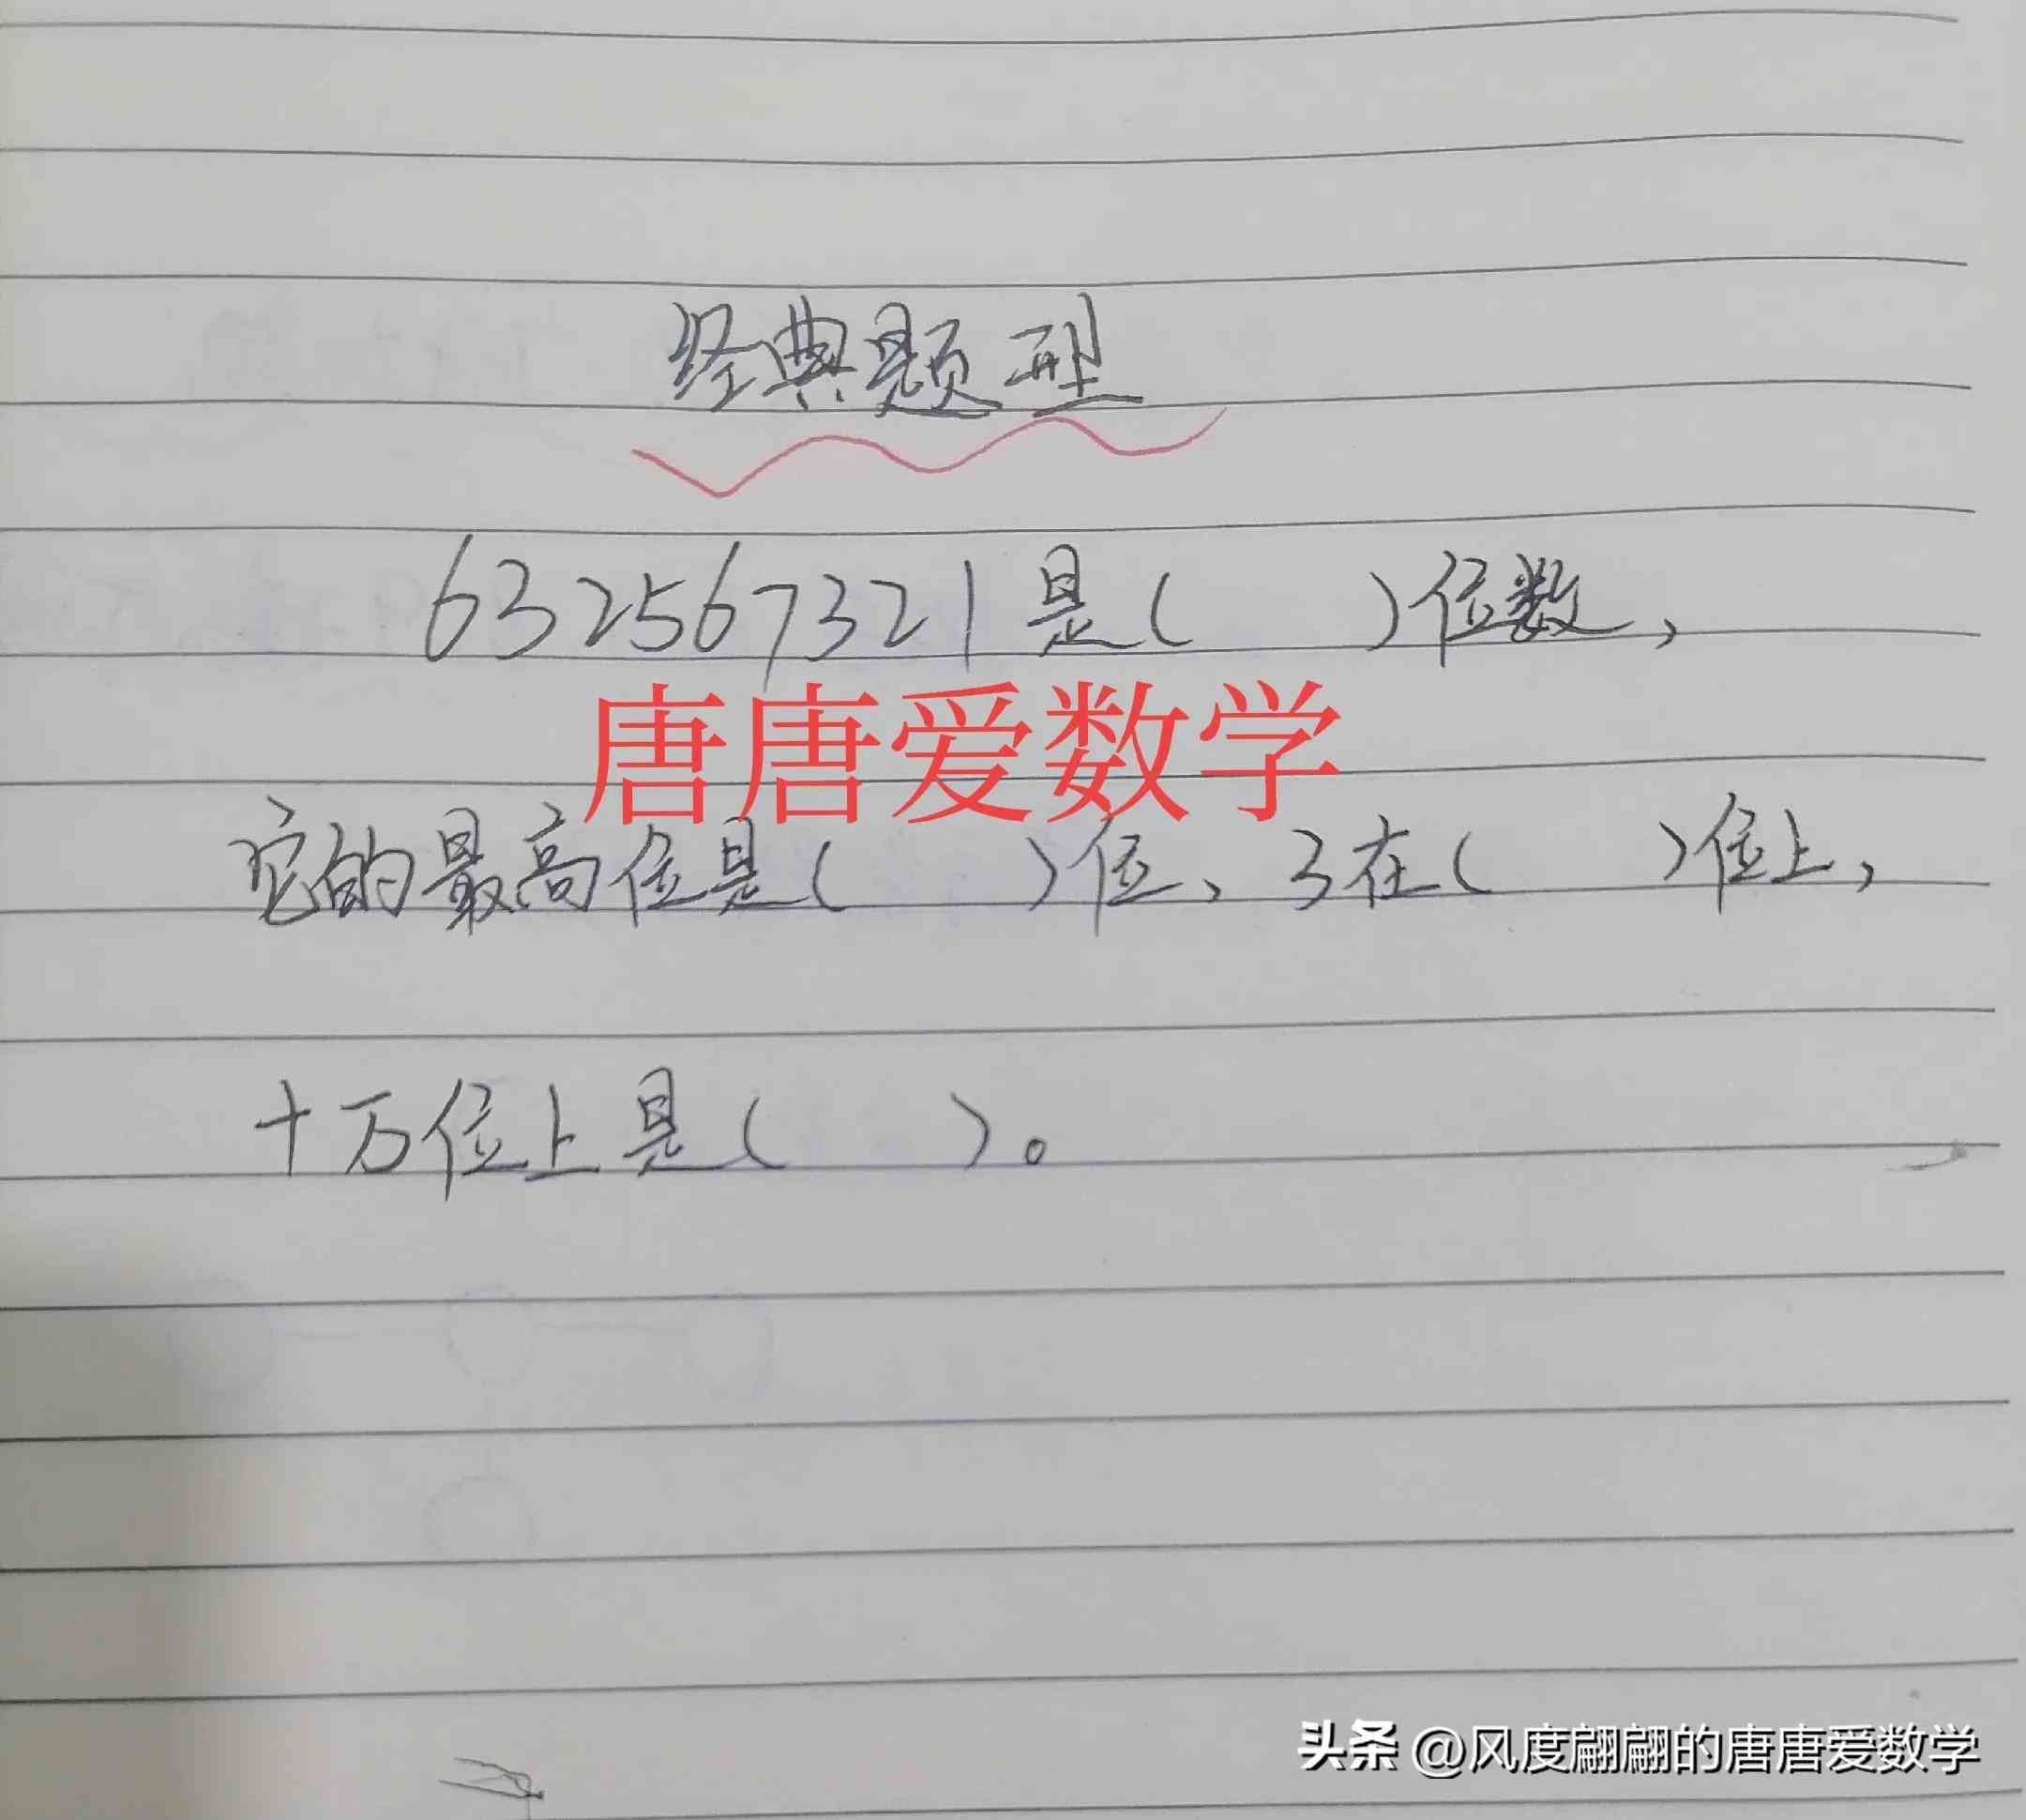 经典题型
632567321是(    )位数,
唐唐爱数学
它的最高位是(    )位、3在(    )位上,
十万位上是(    )。
头条 @风度翩翩的唐唐爱数学